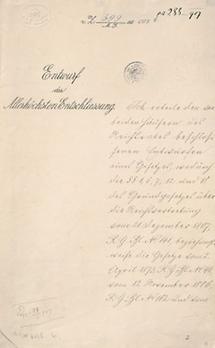 Z. 399
Entwurf
der
Allerhöchsten Entschliessung.
Ich erteile den von
beiden Häusern des
Reichsrates beschlos-
senen Entwürfen
eines Gesetzes, wodurch
die §§ 1, 6, 7, 12 und 18
des Grundgesetzes über
die Reichsvertretung
vom 21. Dezember 1867,
R.G.Bl. № 141, beziehungs-
weise die Gesetze vom 2.
April 1873, R.G.Bl. № 40,
vom 12. November 1886,
R.G.Bl. № 162 und vom